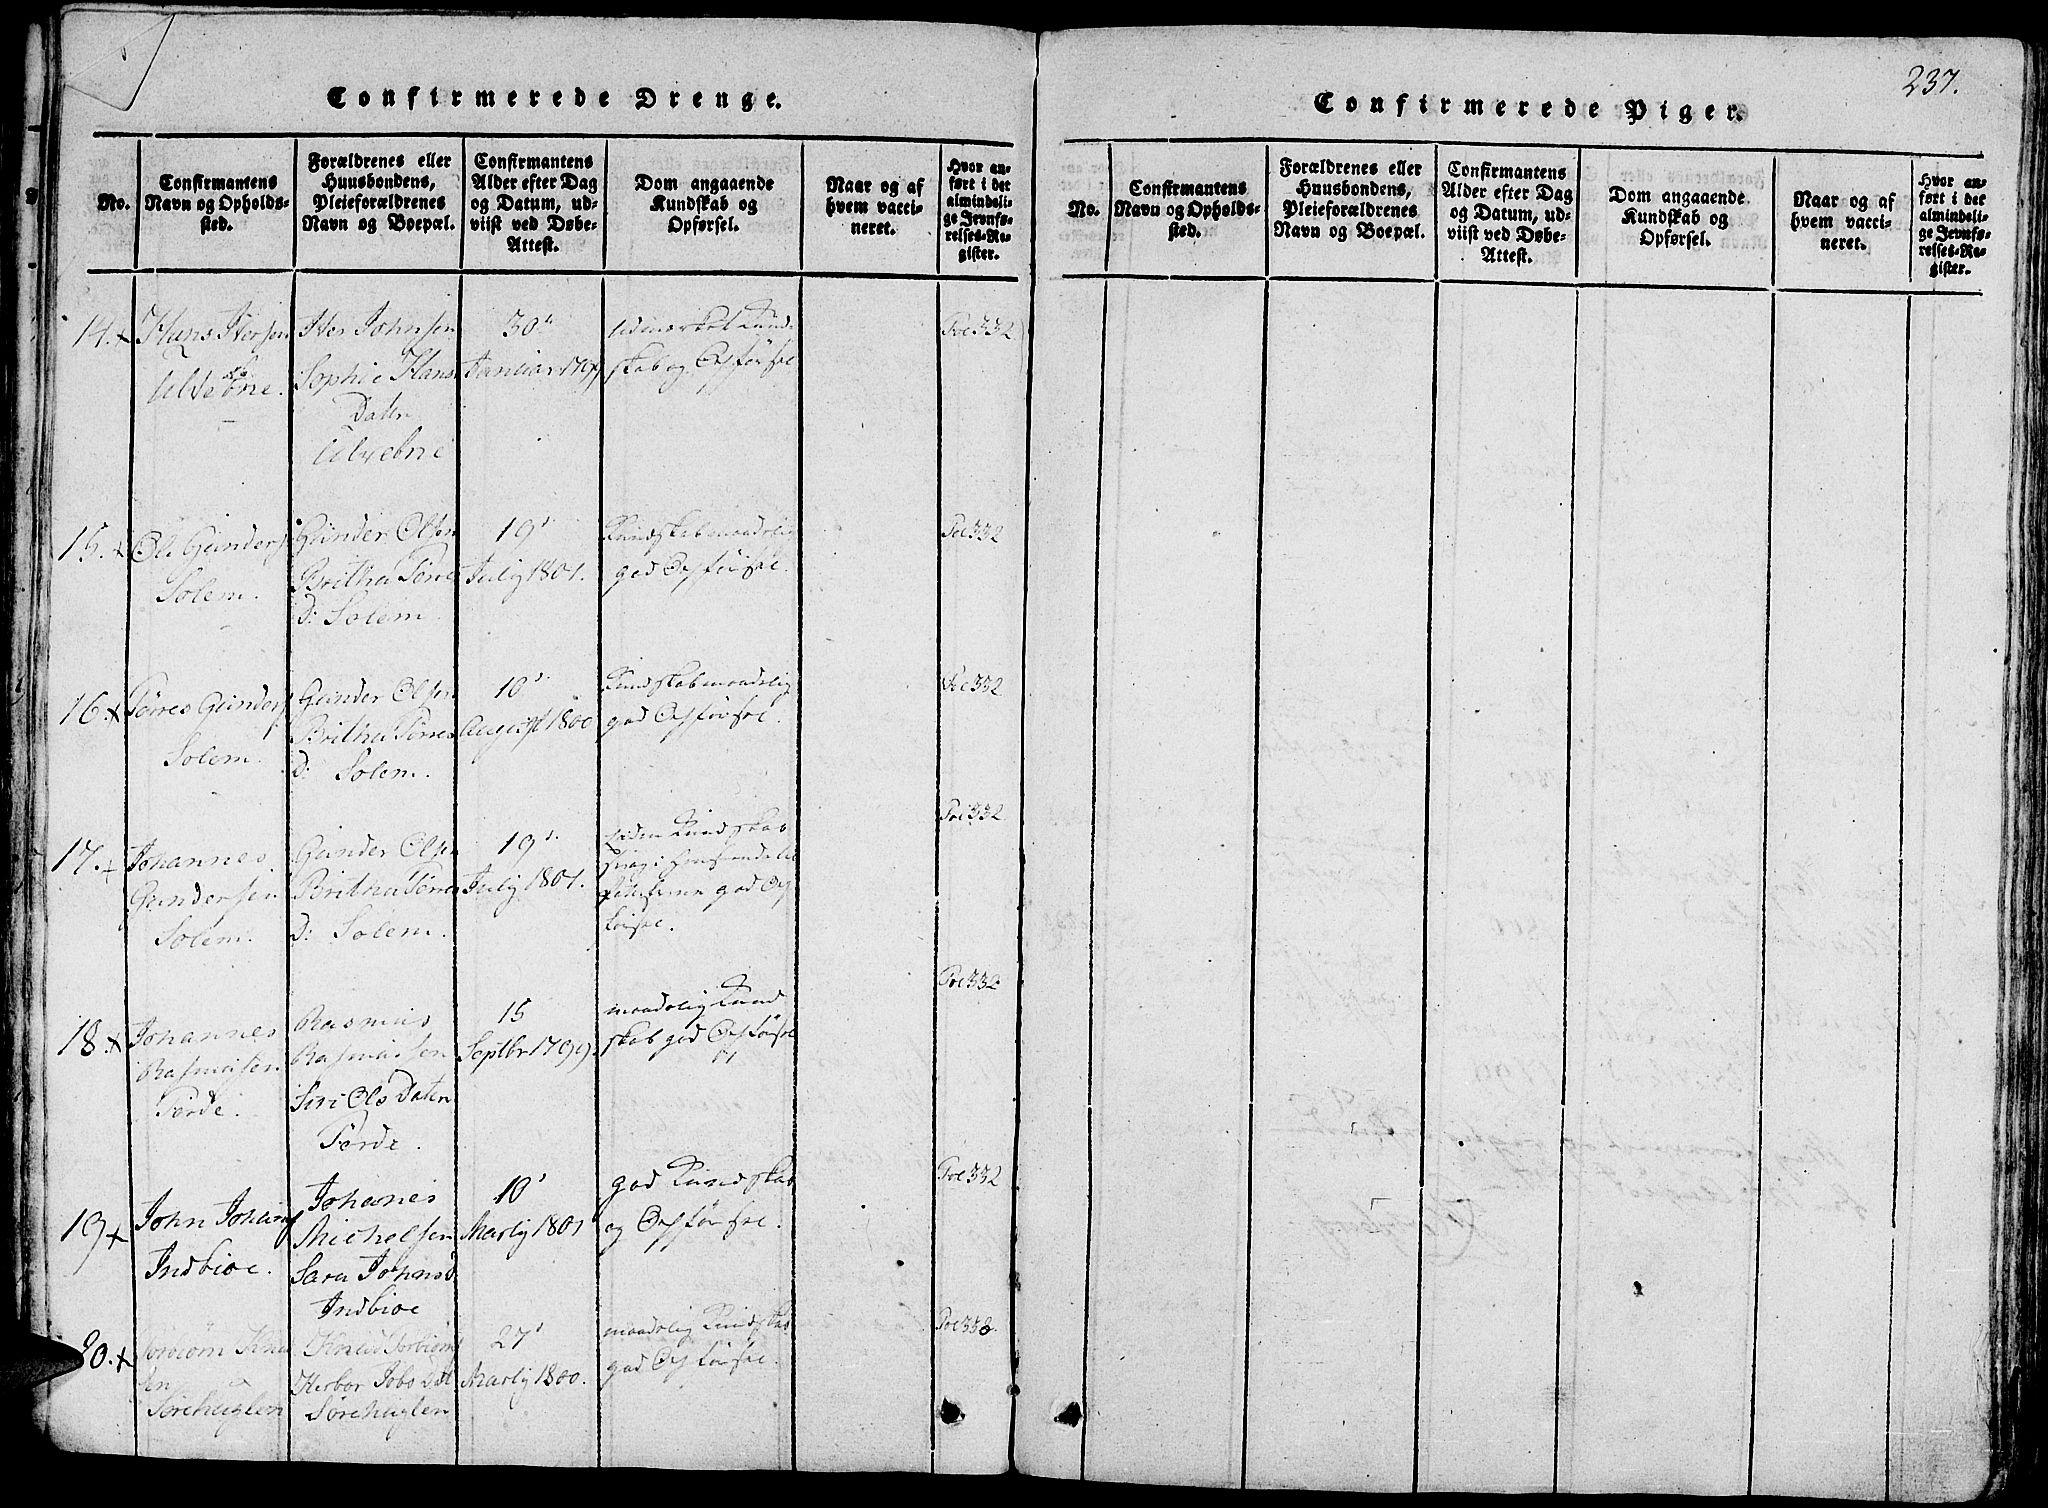 Confirmerede Drenge.
No.
Confirmantens
Navn og Opholds-
sted.
Forældrenes eller
Huusbondens,
Pleieforældrenes
Navn og Boepæl.
Confirmantens
Alder efter Dag
og Datum, ud-
viist ved Døbe-
Attest.
Dom angaaende
Kundskab og
Opførsel.
Naar og af
hvem vacci-
neret.
Hvor an-
ført i det
almindeli-
ge Jevnfø-
relses-Re-
gister.
14.
Hans Itersen
Iter Johnsen
Sophie Hans
Dater
Ulvebne
30
Januar
Udmærket Kund-
skab og Opførsel
Fol 332
15.
Ole Gunders
Solem.
Gunder Olsen
Britha Tørre
D: Solem.
19
July 1801.
Kundskab maadelig
god Opførsel.
Fol 332
16.
Tørres Gunders
Solem.
Gunder Olsen
Britha Tørres
D: Solem.
10
August 1800
Kundskab maadelig
god Opførsel.
Fol 332
17.
Johannes
Gundersen
Solem.
Gunder Olsen
Britha Tørres
D: Solem.
19
July 1801.
liden Kundskab
god Op
førsel.
Fol 332
18.
Johannes
Rasmusen
Førde.
Rasmus
Rasmussen
Siri Ols Dater
Førde.
15
Septbr 1799.
maadelig Kund
skab god Opførsel
Fol 332
19
John Johans
Indbioe.
Johanes
Michelsen
Sara Johnsd
Indbioe
10
Marty 1801
god Kundskab
og Opførsel.
Fol 332
20.
Torbiørn Knu
sen
Sørehuglen
Knud Torbiørns
Sørehuglen
27
Marty 1800.
maadelig Kundskab
god Opførsel.
Confirmerede Piger.
237.
No.
Confirmantens
Navn og Opholds-
sted.
Forældrenes eller
Huusbondens,
Pleieforældrenes
Navn og Boepæl.
Confirmantens
Alder efter Dag
og Datum, ud-
viist ved Døbe-
Attest.
Dom angaaende
Kundskab og
Opførsel.
Naar og af
hvem vacci-
neret.
Hvor an-
ført i det
almindeli-
ge Jevnfø-
relses-Re-
gister.